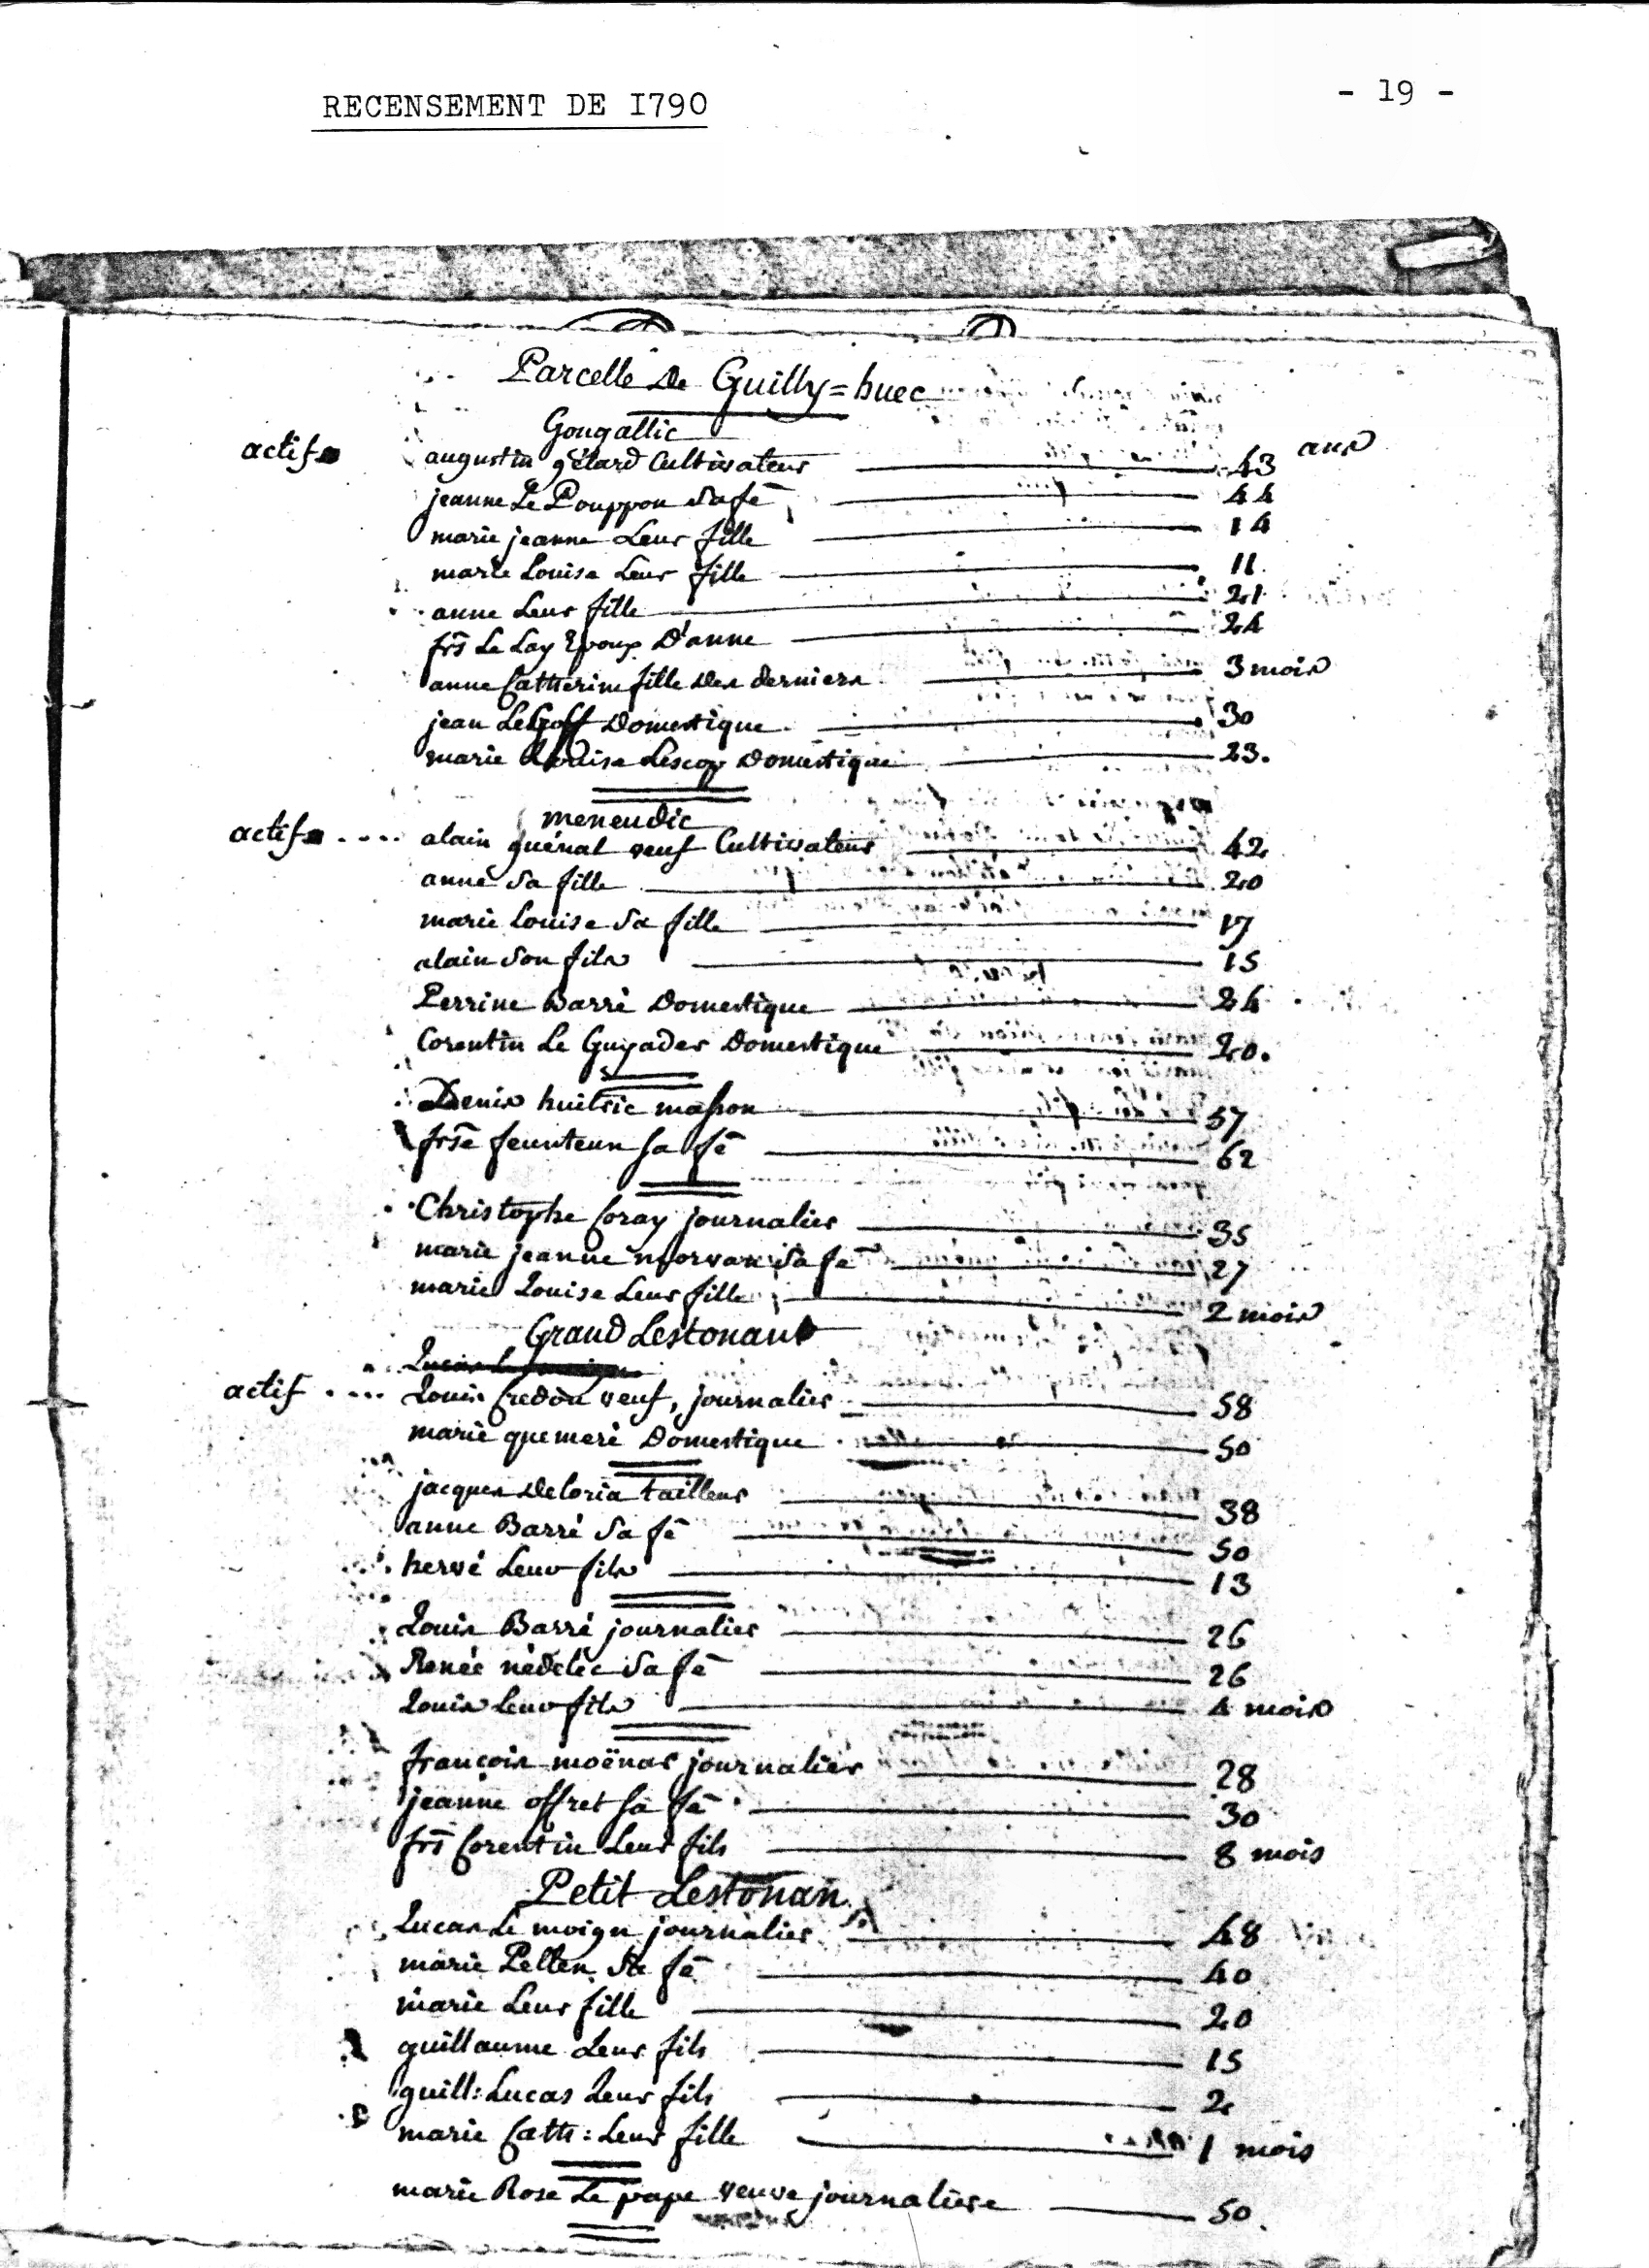 RECENSEMENT DE I790
- 19 -
Parcelle de Guilly=huec
Gougallic
actifs augustin gélard Cultivateur 43 ans
jeanne Le Pouppon Sa fe 44
marie jeanne Leur fille 14
marie Louise Leur fille 11
anne Leur fille 21
frs Le Lay Epoux D'anne 24
anne Catherine fille des derniers 3 mois
jean LeGoff Domestique 30
marie Louise Lescop Domestique 23.
meneudic
actifs .... alain guénal veuf Cultivateur 42
anne Sa fille 20
marie Louise Sa fille 17
alain Son fils 15
Perrine Barré Domestique 24
Corentin Le Guyader Domestique 20.
Denis huitric masson 57
frse feunteun sa fe 62
Christophe Coray journalier 35
marie jeanne morvan Sa fe 27
marie Louise Leur fille 2 mois
Grand Lestonan
actif .... Louis Credou veuf, journalier 58
marie quemeré Domestique 50
jacques Deloria tailleur 38
anne Barré Sa fe 50
hervé Leur fils 13
Louis Barré journalier 26
Renée nédélec Sa fe 26
Louis Leur fils 4 mois
françois moënar journalier 28
jeanne offret sa fe 30
frs Corentin Leur fils 8 mois
Petit Lestonan
Lucas Le moign journalier 48
marie Pelten Sa fe 40
marie Leur fille 20
guillaume Leur fils 15
guill: Lucas Leur fils 2
marie Cath: Leur fille 1 mois
marie Rose Le pape veuve journalière 50